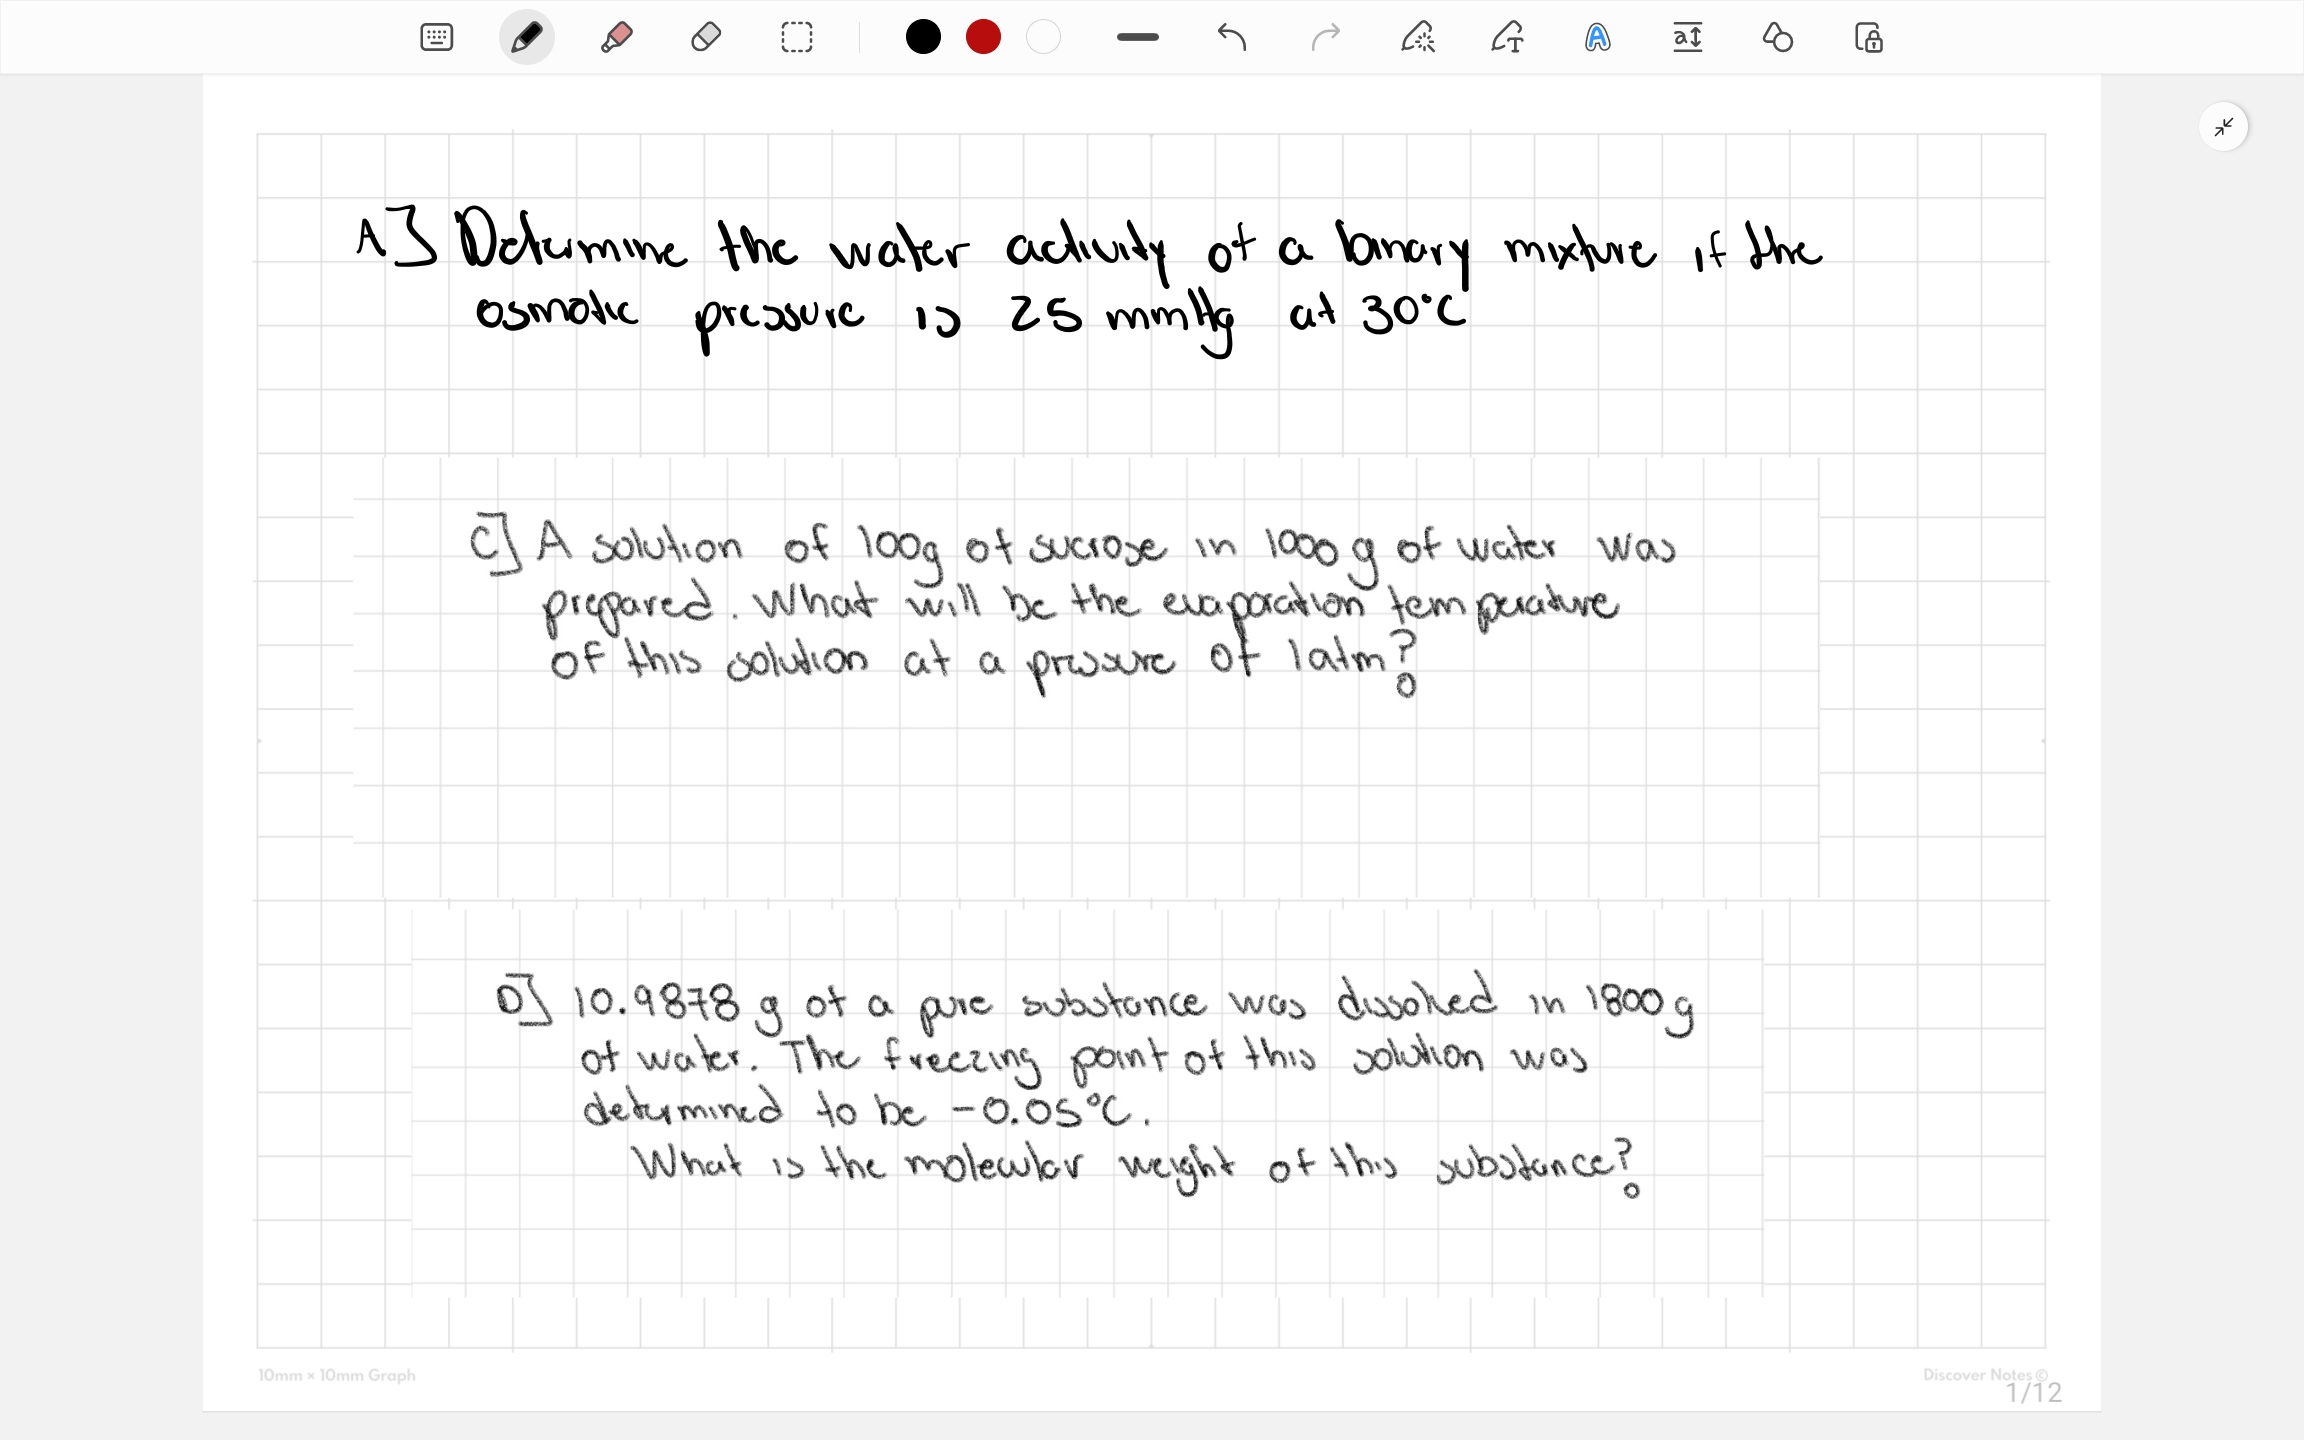 A] Determine the water activity of a binary mixture if the
osmotic pressure is 25 mmHg at 30°C
C] A solution of 100g of sucrose in 1000g of water was
prepared. What will be the evaporation temperature
of this solution at a pressure of 1atm?
D] 10.9878 g of a pure substance was dissolved in 1800g
of water. The freezing point of this solution was
determined to be -0.05°C.
What is the molecular weight of this substance?
10mm × 10mm Graph
Discover Notes ©
1/12